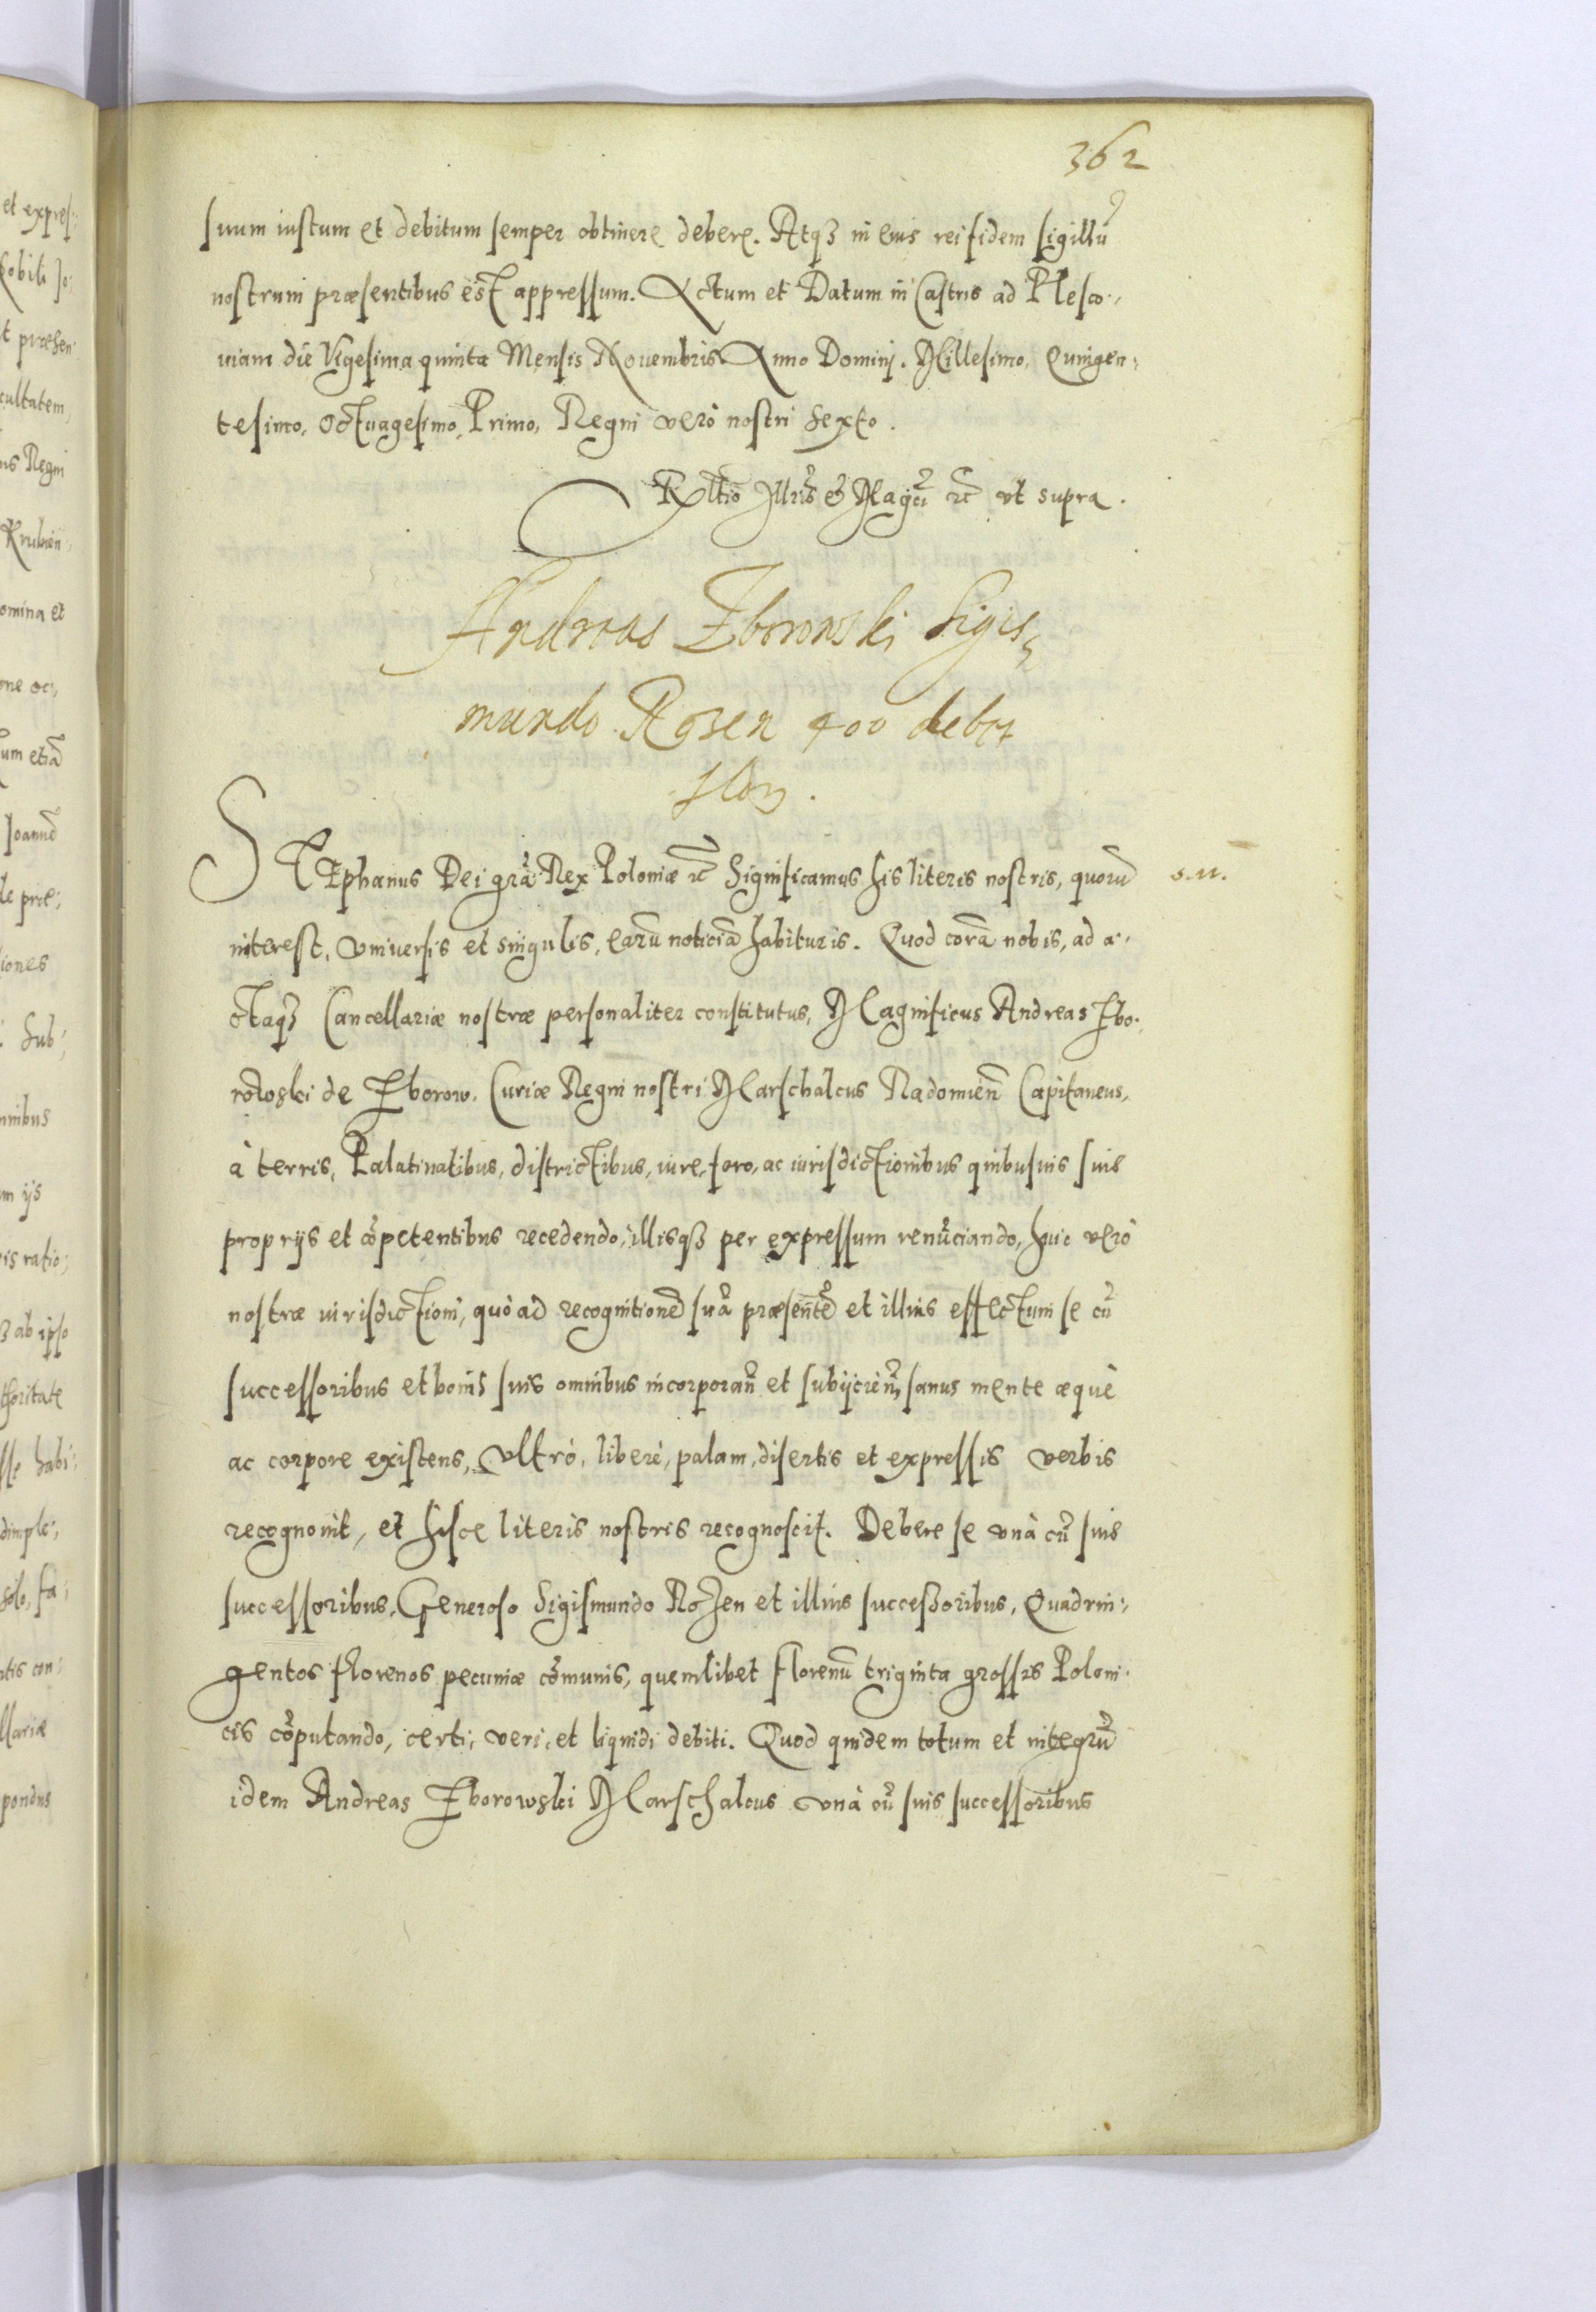 362
suum iustum et debitum semper obtinere debere. Atqȝ in eius rei fidem sigillũ
nostrum præsentibus est appressum. Actum et Datum in Castris ad Plesco:,
uiam die Vigesima quinta Mensis Nouembris Anno Domini. Millesimo, Quingen:
tesimo, Octuagesimo, Primo, Regni verò nostri Sexto.
Rltio Illris & Magci ꝛc vt supra.
Andreas Zborowski Sigis,
mundo Rosen 400 debet
flor.
STEphanus Dei grã Rex Poloniæ ꝛc Significamus his literis nostris, quorũ
s. n.
interest, vniuersis et singulis, earũ noticiã habituris. Quod corã nobis, ad a:
ctaqȝ Cancellariæ nostræ personaliter constitutus, Magnificus Andreas Zbo:
rowski de Zborow. Curiæ Regni nostri Marschalcus Radomien̄ Capitaneus,
à terris, Palatinatibus, districtibus, iure, foro, ac iurisdictionibus quibusuis suis
proprijs et cõpetentibus recedendo, illisqȝ per expressum renũciando, huic verò
nostræ iurisdictioni, quò ad recognitionẽ suã præsentẽ et illius effectum se cũ
successoribus et bonis suis omnibus incorporan̄ et subijcien̄, sanus mente æquè
ac corpore existens, vltrò, liberè, palam, disertis et expressis verbis
recognouit, et hisce literis nostris recognoscit. Debere se vnà cũ suis
successoribus, Generoso Sigismundo Rozen et illius successoribus, Quadrin:,
gentos florenos pecuniæ cõmunis, quemlibet florenũ triginta grossis Poloni:
cis cõputando, certi, veri, et liquidi debiti. Quod quidem totum et integrũ
idem Andreas Zborowski Marschalcus vnà cũ suis successoribus